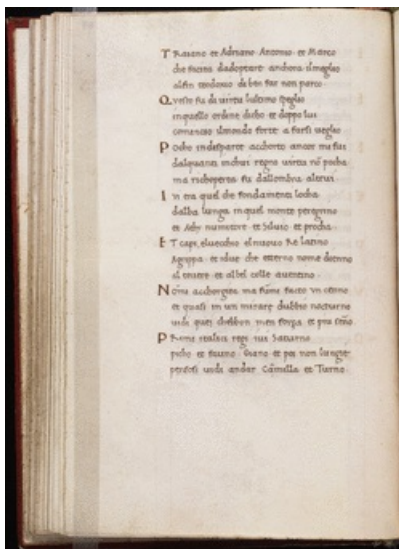 T Raiano et Adriano Antonio et Marco
che facea dadoptare anchora ilmeglio
alfin teodosio di ben far non parco
Q uesto fu di virtu lultimo speglio
inquello ordine dicho et doppo lui
comincio ilmondo forte a farsi veglio
P ocho indisparte acchorto ancor mi fui
dalquanti inchui regno virtu nō pocha
ma richoperta fu dallombra altrui
I vi era quel che fondamenti locha
dalba lunga inquel monte peregrino
et Athy numitore et Siluio et procha
E T capi eluecchio el nuouo Re latino
Agrippa et idue che etterno nome denno
al teuere et al bel colle auentino
N on mi acchorgea ma fūmi facto vn cenno
et quasi in un mirare dubbio nocturno
uidi quei chebbon men forza et piu sēno
P Rimi italici regi iui Saturno
picho et fauno Giano et poi non lungie
pensosi uidi andar Cāmilla et Turno